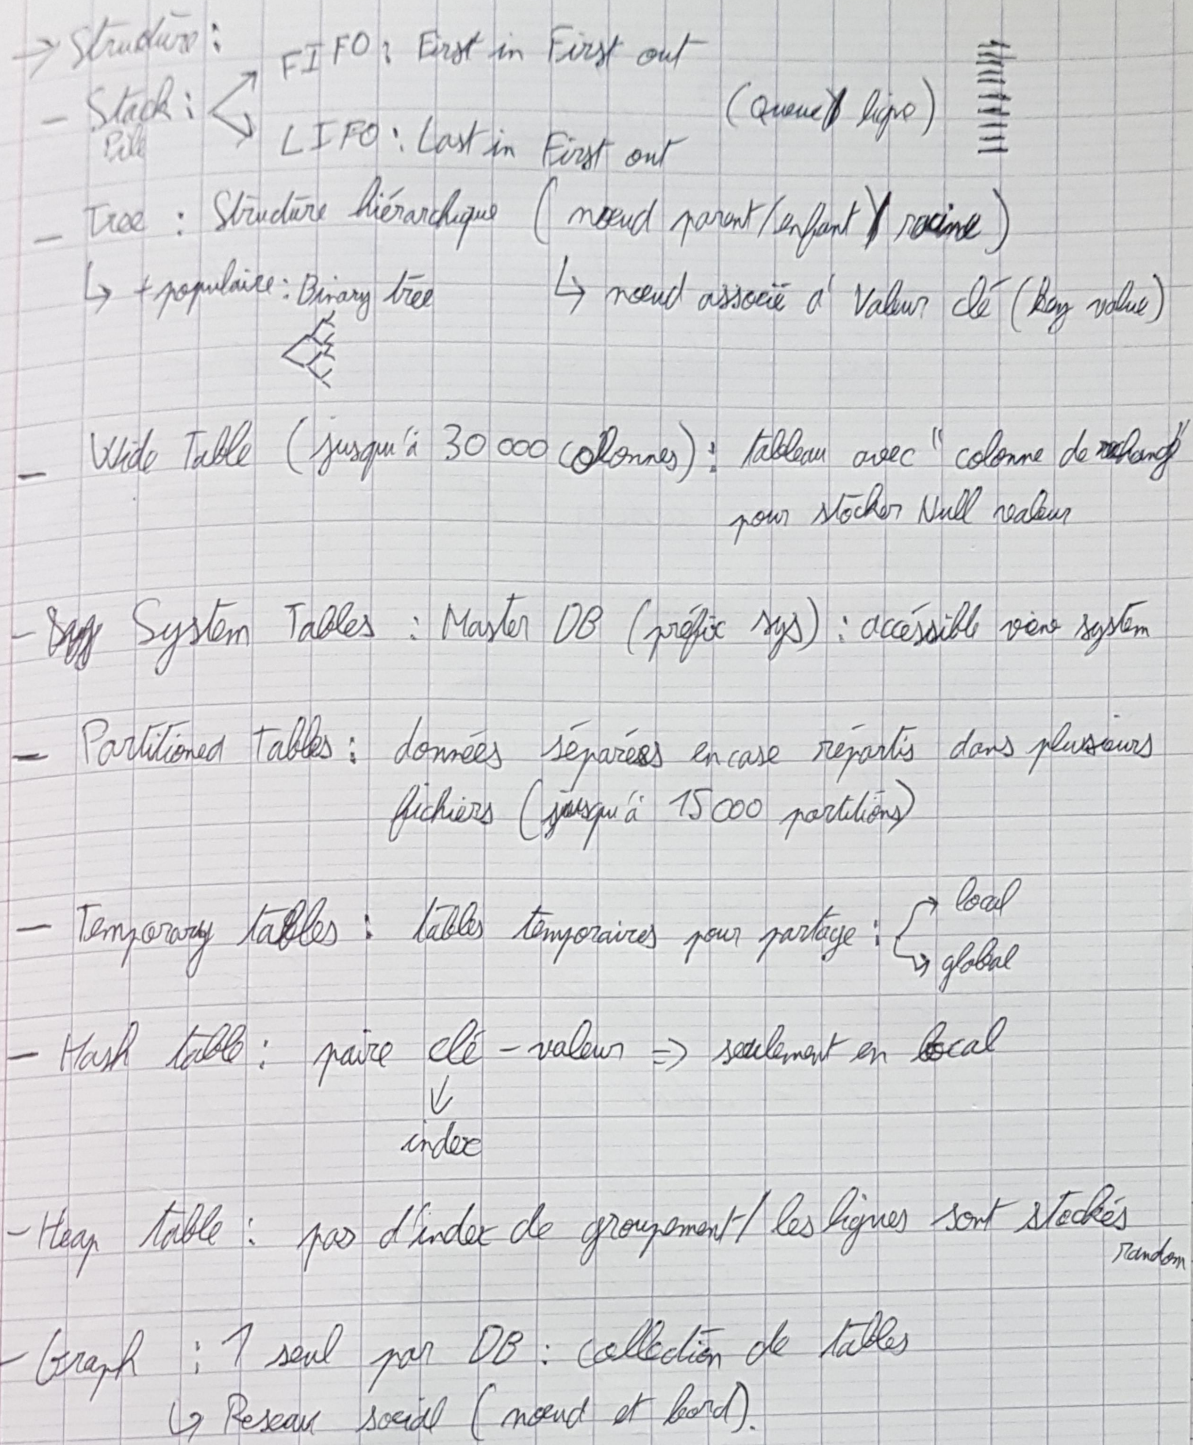 → Structure :
FIFO : First in First out
- Stack :
(Queue / ligne)
Pile
LIFO : Last in First out
- Tree : Structure hiérarchique (nœud parent/enfant / racine)
↳ + populaire : Binary tree ↳ nœud associé à Valeur clé (Key value)
- Wide Table (jusqu'à 30 000 colonnes) : tableau avec "colonne de rechange"
pour stocker Null valeur
- System Tables : Master DB (préfix sys) : accéssible view system
- Partitioned Tables : données séparées en case répartis dans plusieurs
fichiers (jusqu'à 15 000 partitions)
- Temporary tables : tables temporaires pour partage : → local
→ global
- Hash table : paire clé - valeur => seulement en local
↓
index
- Heap table : pas d'index de groupement / les lignes sont stockés
random
- Graph : 1 seul par DB : collection de tables
↳ Reseau social (nœud et bord).